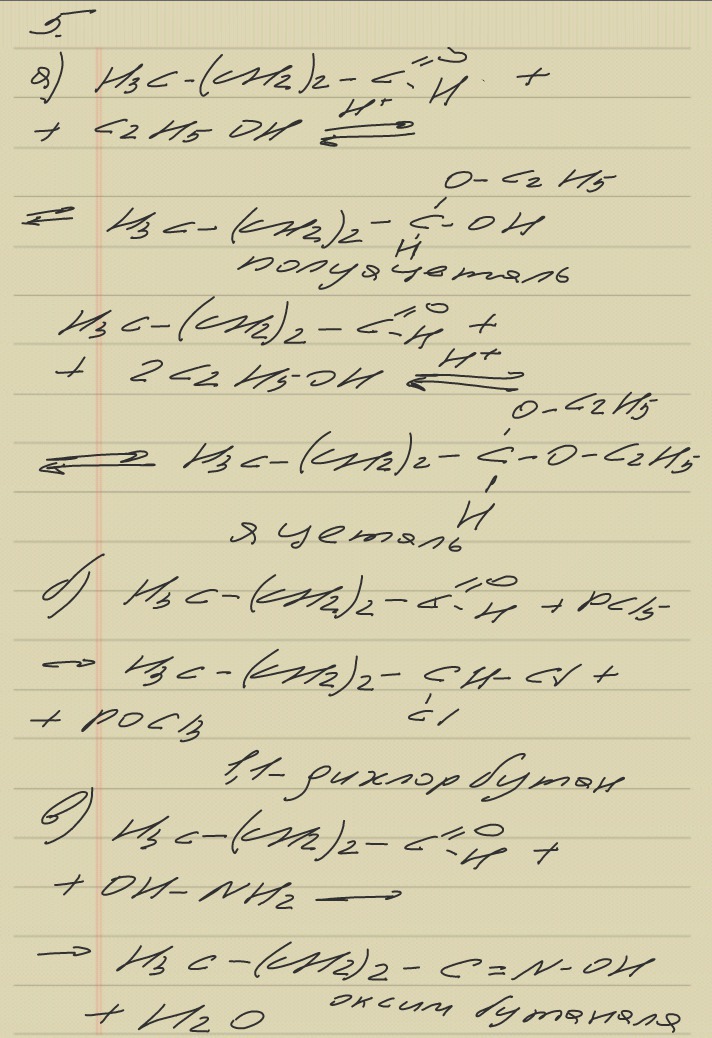 5.
а) H3C-(CH2)2-C=O-H +
+ C2H5OH ⇌ H+
O-C2H5
⇌ H3C-(CH2)2-C-OH
H
полуацеталь
H3C-(CH2)2-C=O-H +
+ 2C2H5-OH ⇌ H+
O-C2H5
⇌ H3C-(CH2)2-C-O-C2H5
H
ацеталь
б) H3C-(CH2)2-C=O-H + PCl5
→ H3C-(CH2)2-CH-Cl +
+ POCl3 Cl
1,1-дихлорбутан
в) H3C-(CH2)2-C=O-H +
+ OH-NH2 →
→ H3C-(CH2)2-C=N-OH
+ H2O оксим бутаналя